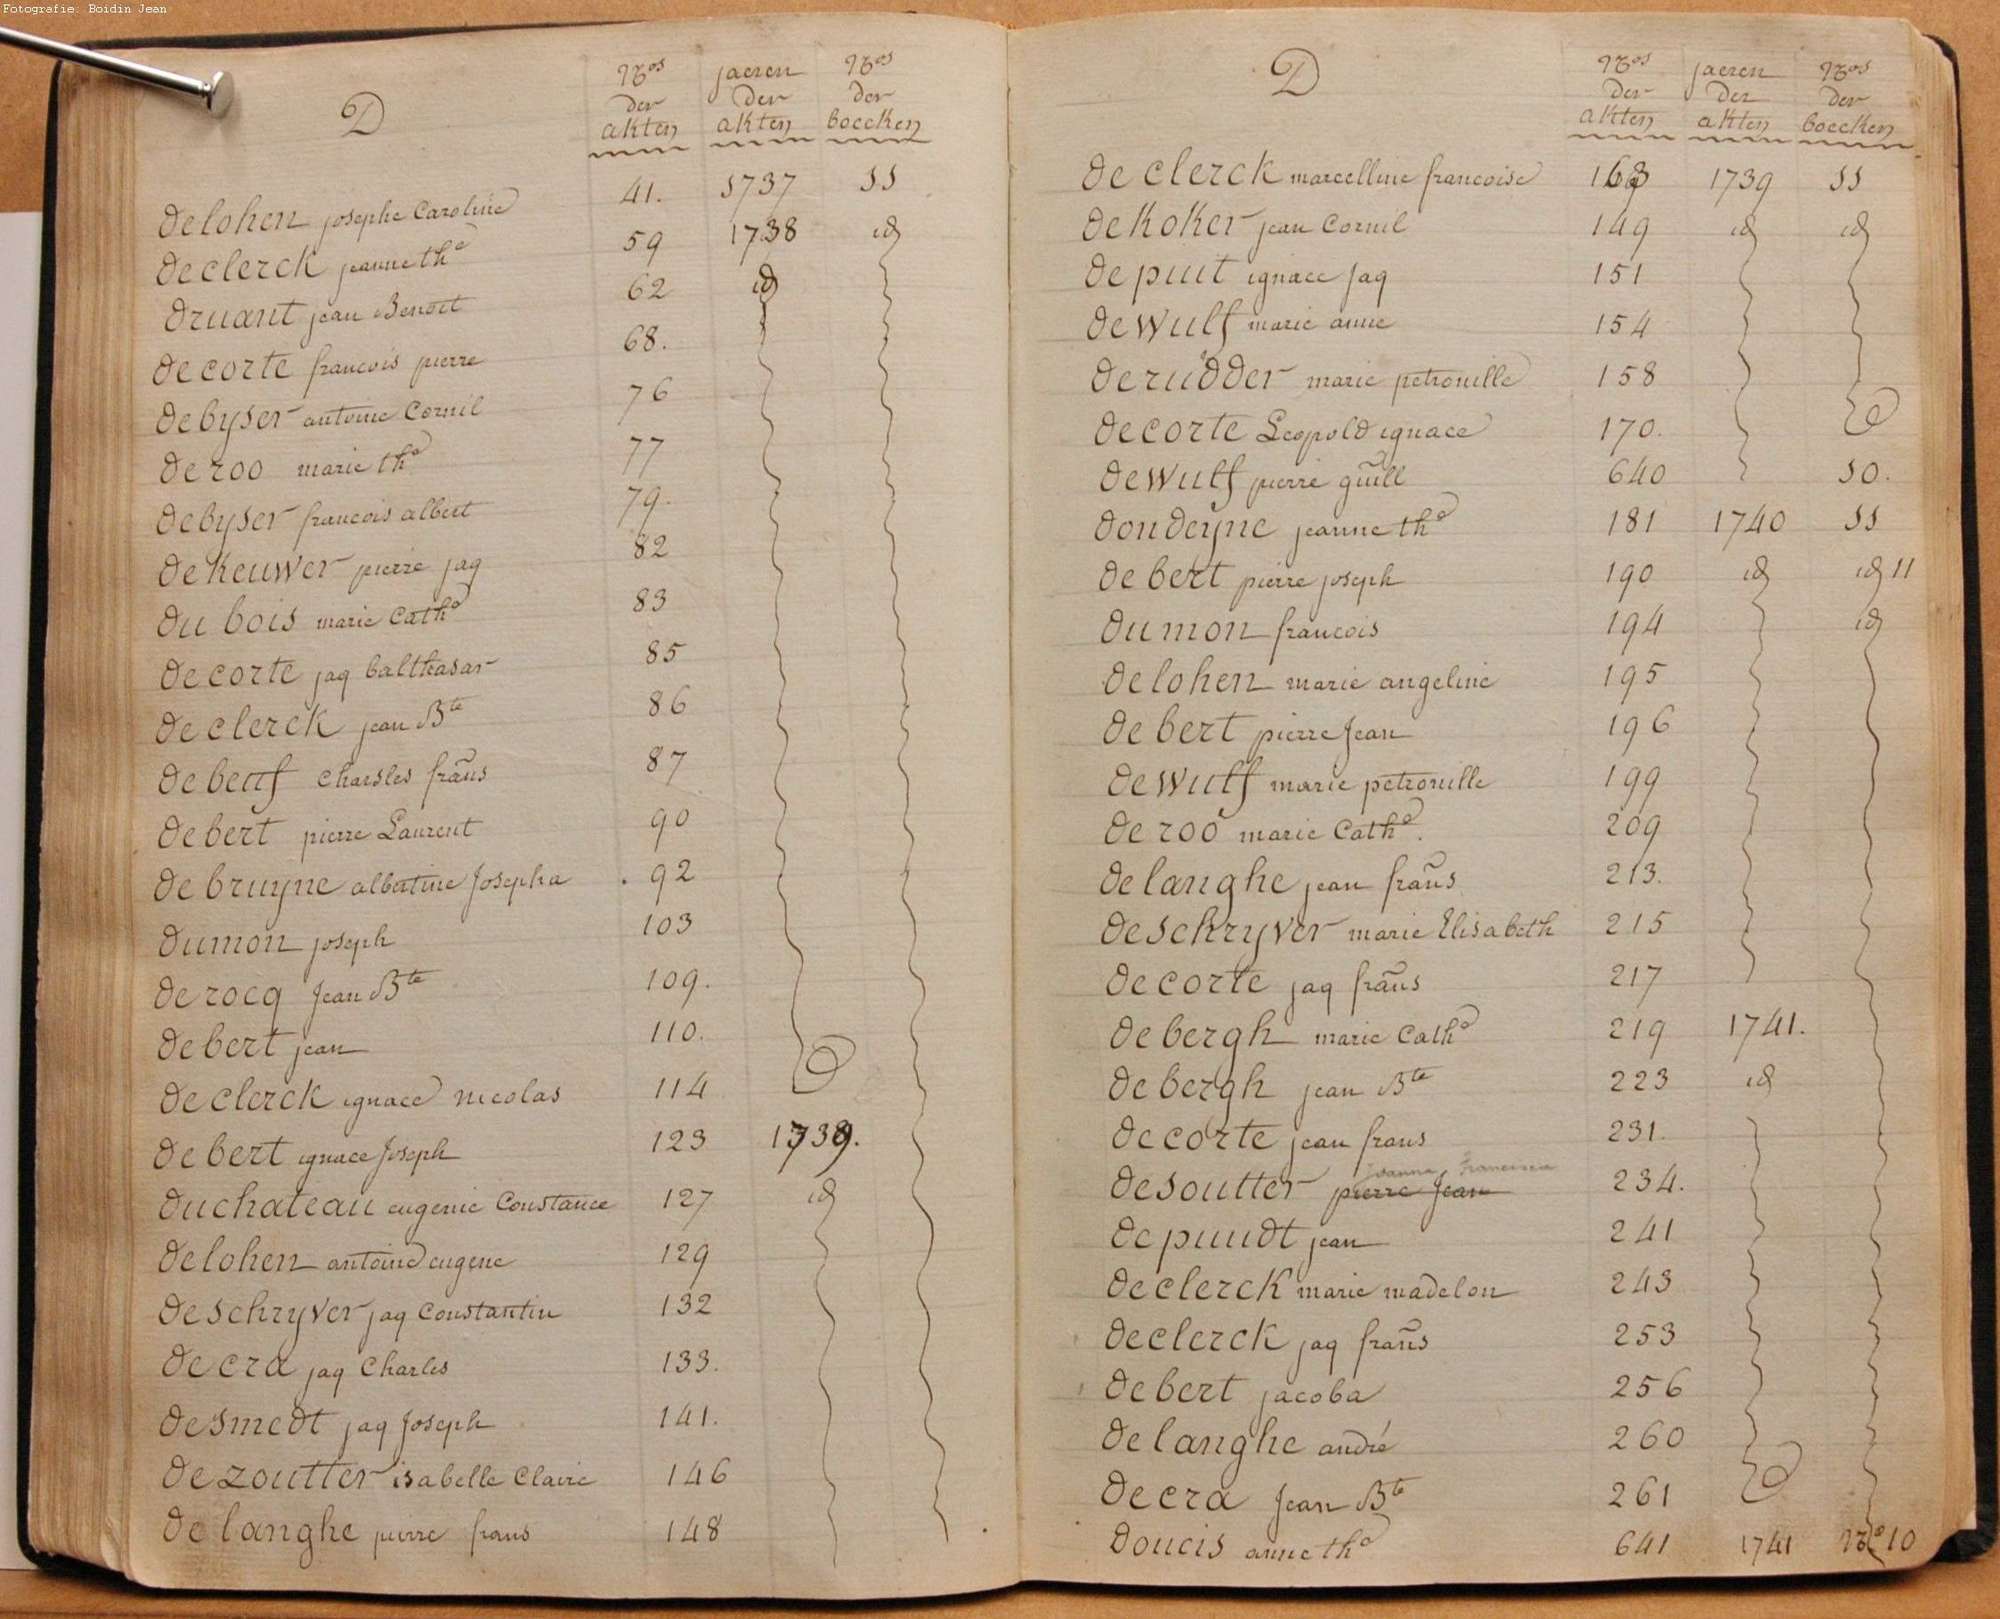 Fotografie: Boidin Jean
D
Nros der akten
jaeren der akten
Nros der boecken
Delohen josephe Caroline 41. 1737 11
Declerck jeanne the 59 1738 id
Druant jean Benoit 62 id
Decorte francois pierre 68.
Debyser antoine Cornil 76
De roo marie the 77
Debyser francois albert 79.
De Keuwer pierre jaq 82
Du bois marie Cathe 83
De corte jaq balthasar 85
De clerck jean Bte 86
De beuf Charsles frans 87
De bert pierre Laurent 90
De bruyne albertine Josepha 92
Dumon joseph 103
De rocq Jean Bte 109.
De bert jean 110.
De clerck ignace nicolas 114
De bert ignace Joseph 123 1739.
Duchateau eugenie Constance 127 id
Delohen antoine eugene 129
De schryver jaq Constantin 132
De cra jaq Charles 133.
De smedt jaq Joseph 141.
De zoutter isabelle Claire 146
De langhe pierre frans 148
D
Nros der akten
jaeren der akten
Nros der boecken
De clerck marcelline francoise 163 1739 11
De Koker jean Cornil 149 id id
De puit ignace jaq 151
De wulf marie anne 154
De rudder marie petronille 158
De corte Leopold ignace 170.
De wulf pierre guill 640 10.
Dondeyne jeanne the 181 1740 11
De bert pierre joseph 190 id id 11
Dumon francois 194 id
Delohen marie angeline 195
De bert pierre Jean 196
De wulf marie petronille 199
De roo marie Cathe. 209
De langhe jean frans 213.
De schryver marie Elisabeth 215
De corte jaq frans 217
De bergh marie Cathe 219 1741.
De bergh jean Bte 223 id
De corte jean frans 231.
Joanna Francisca
De soutter pierre Jean 234.
De puudt jean 241
De clerck marie madelon 243
De clerck jaq frans 253
De bert jacoba 256
De langhe andré 260
De cra Jean Bte 261
Doucis anne the 641 1741 No 10